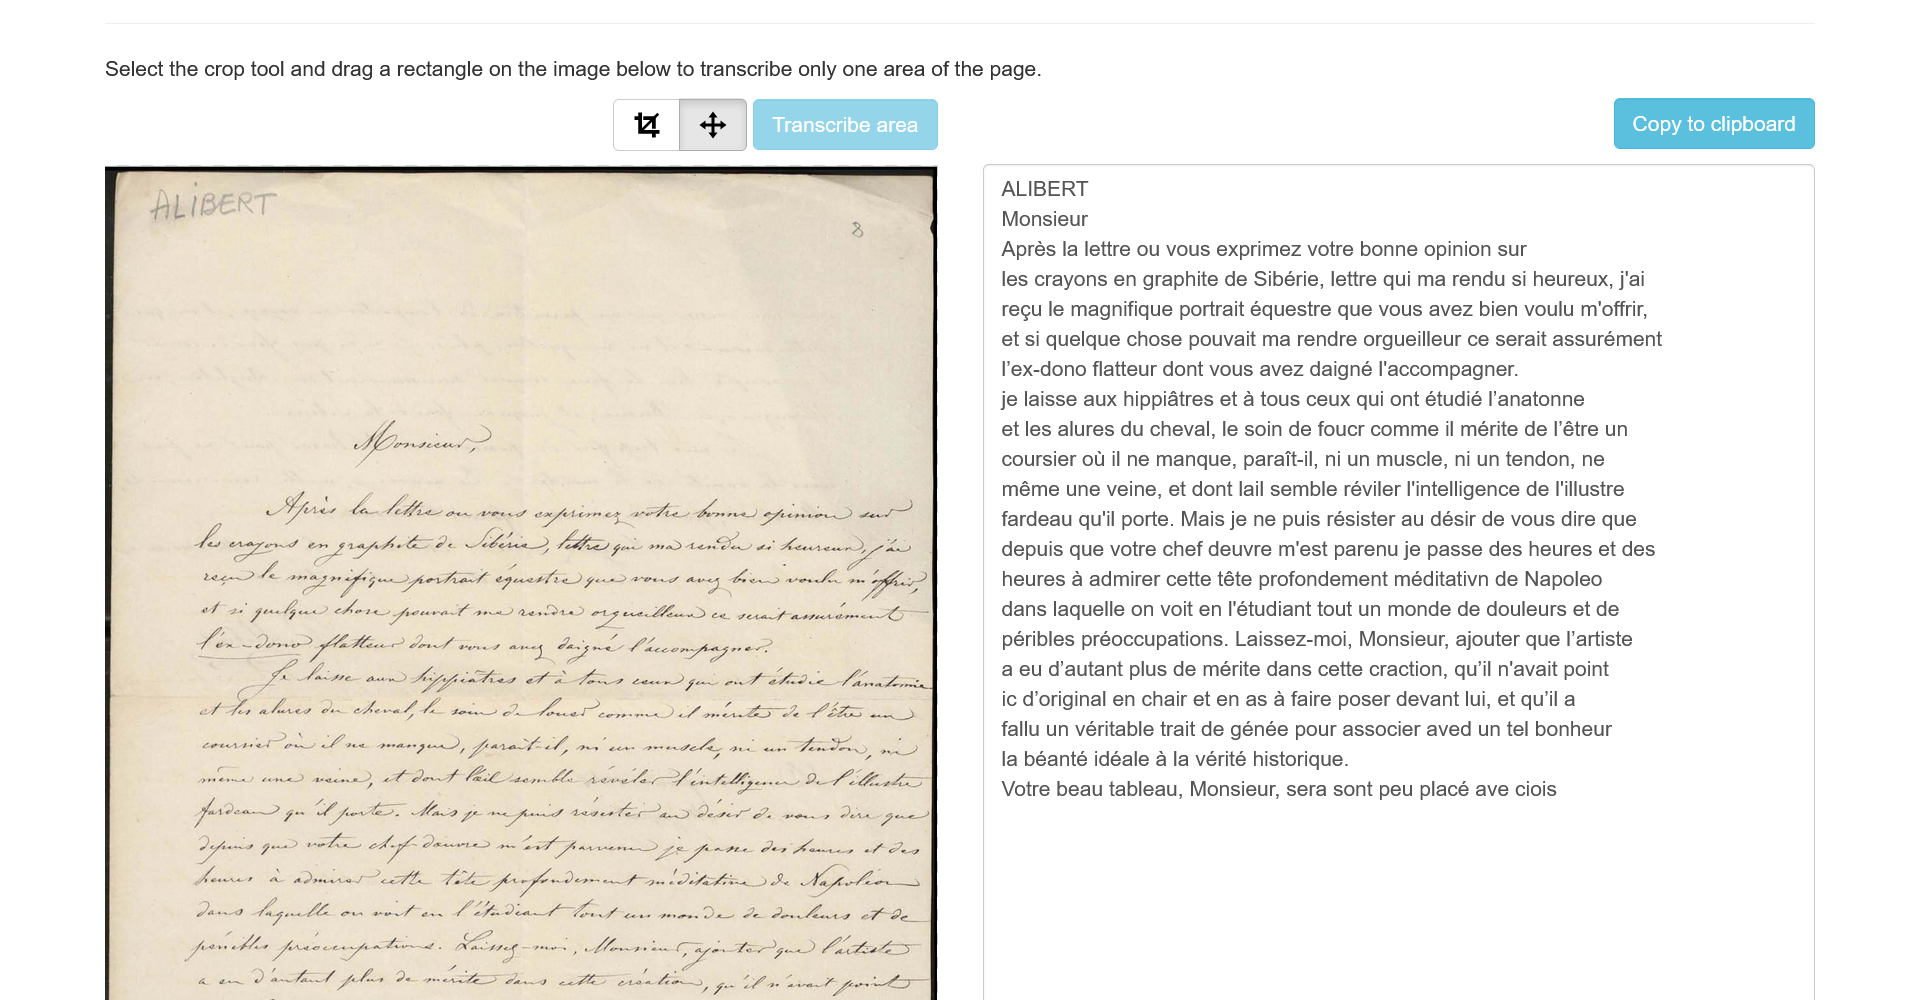 Select the crop tool and drag a rectangle on the image below to transcribe only one area of the page.
Transcribe area
Copy to clipboard
ALIBERT
8
Monsieur,
Après la lettre ou vous exprimez votre bonne opinion sur
les crayons en graphite de Sibérie, lettre qui ma rendu si heureux, j'ai
reçu le magnifique portrait équestre que vous avez bien voulu m'offrir,
et si quelque chose pouvait me rendre orgueilleux ce serait assurément
l'ex-dono flatteur dont vous avez daigné l'accompagner.
Je laisse aux hippiâtres et à tous ceux qui ont étudié l'anatomie
et les alures du cheval, le soin de louer comme il mérite de l'être un
coursier où il ne manque, paraît-il, ni un muscle, ni un tendon, ni
même une veine, et dont l'œil semble révéler l'intelligence de l'illustre
fardeau qu'il porte. Mais je ne puis résister au désir de vous dire que
depuis que votre chef-dœuvre m'est parvenu je passe des heures et des
heures à admirer cette tête profondement méditative de Napoléon
dans laquelle on voit en l'étudiant tout un monde de douleurs et de
pénibles préoccupations. Laissez-moi, Monsieur, ajouter que l'artiste
a eu d'autant plus de mérite dans cette création, qu'il n'avait point
ALIBERT
Monsieur
Après la lettre ou vous exprimez votre bonne opinion sur
les crayons en graphite de Sibérie, lettre qui ma rendu si heureux, j'ai
reçu le magnifique portrait équestre que vous avez bien voulu m'offrir,
et si quelque chose pouvait ma rendre orgueilleur ce serait assurément
l’ex-dono flatteur dont vous avez daigné l'accompagner.
je laisse aux hippiâtres et à tous ceux qui ont étudié l’anatonne
et les alures du cheval, le soin de foucr comme il mérite de l’être un
coursier où il ne manque, paraît-il, ni un muscle, ni un tendon, ne
même une veine, et dont lail semble réviler l'intelligence de l'illustre
fardeau qu'il porte. Mais je ne puis résister au désir de vous dire que
depuis que votre chef deuvre m'est parenu je passe des heures et des
heures à admirer cette tête profondement méditativn de Napoleo
dans laquelle on voit en l'étudiant tout un monde de douleurs et de
péribles préoccupations. Laissez-moi, Monsieur, ajouter que l’artiste
a eu d’autant plus de mérite dans cette craction, qu’il n'avait point
ic d’original en chair et en as à faire poser devant lui, et qu’il a
fallu un véritable trait de génée pour associer aved un tel bonheur
la béanté idéale à la vérité historique.
Votre beau tableau, Monsieur, sera sont peu placé ave ciois